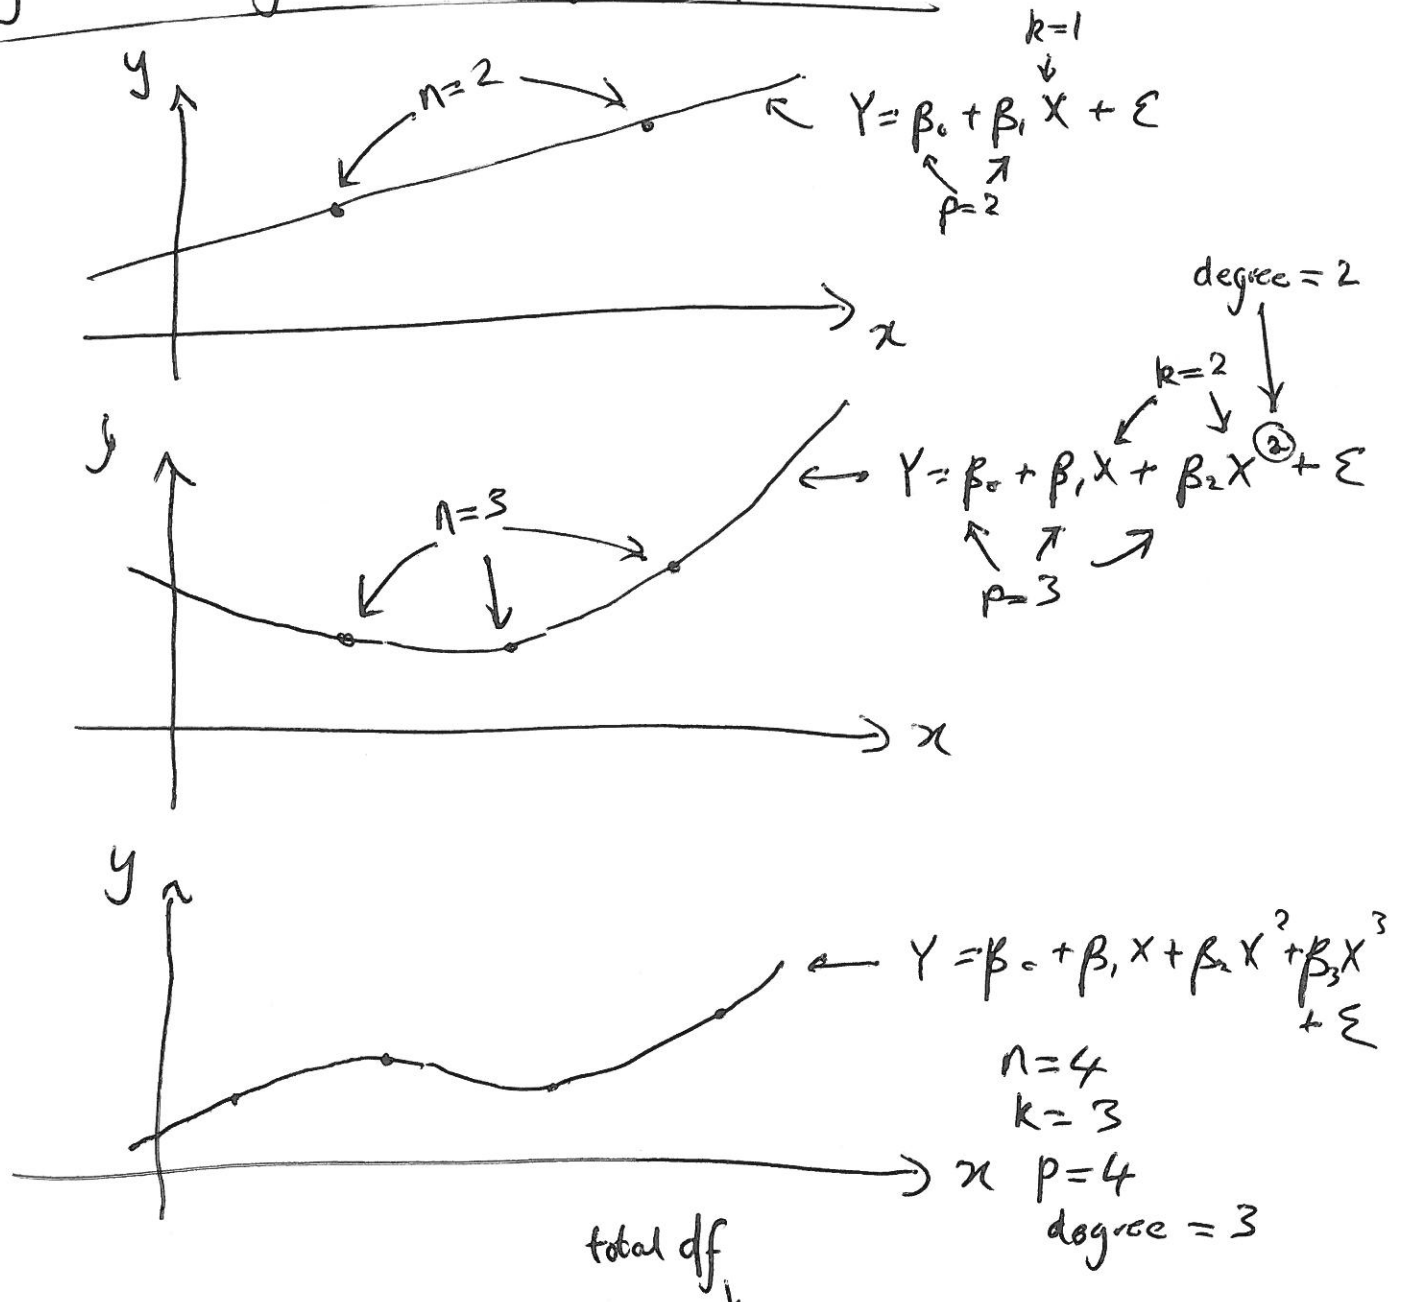 k=1
↓
y
n=2
Y = β₀ + β₁ X + ε
p=2
x
degree = 2
k=2
y
n=3
Y = β₀ + β₁ X + β₂ X² + ε
p=3
x
y
Y = β₀ + β₁ X + β₂ X² + β₃ X³
+ ε
n=4
k=3
x
p=4
degree = 3
total df